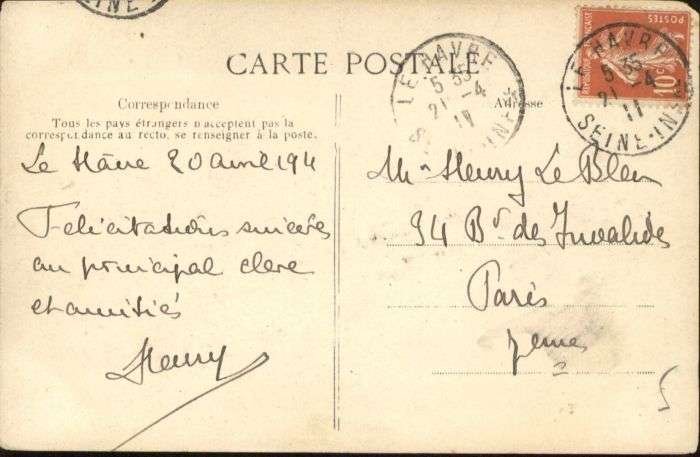 CARTE POSTALE
Correspondance
Tous les pays étrangers n'acceptent pas la
correspondance au recto, se renseigner à la poste.
Le Hâvre 20 avril 1911
Félicitations sincères
au principal clerc
et amitiés
Henry
Adresse
Mr Henry Le Bleu
34 Bd des Invalides
Paris
7eme
LE HAVRE
5 35
21 -4
11
SEINE-INFRE
POSTES
10c
LE HAVRE
5 35
21 -4
11